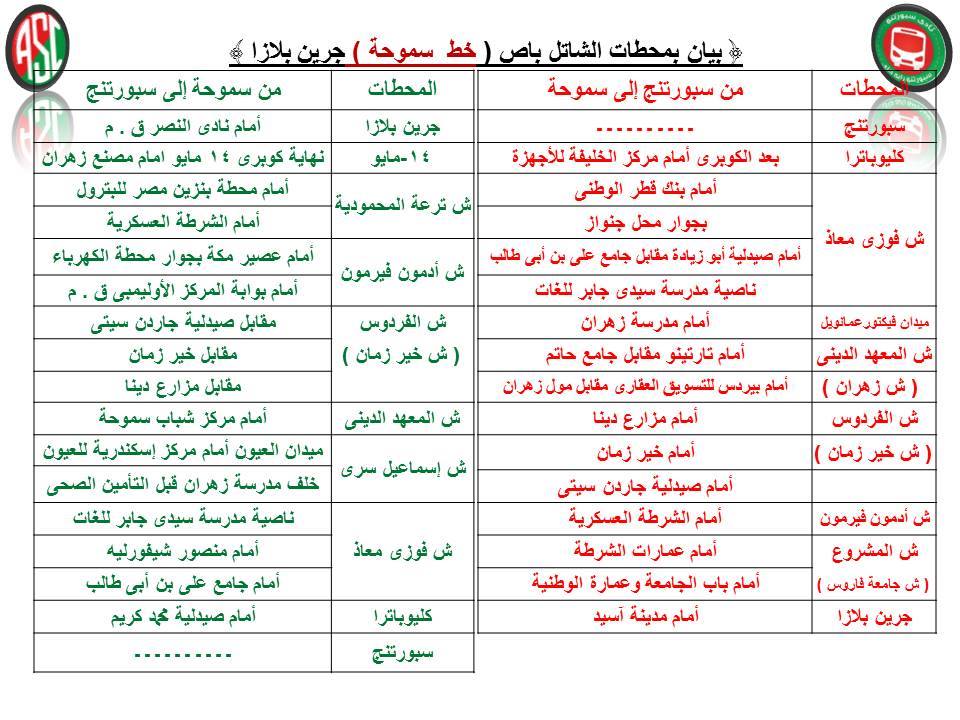 ﴿ بيان بمحطات الشاتل باص ( خط سموحة ) جرين بلازا ﴾
المحطات من سبورتنج إلى سموحة
سبورتنج - - - - - - - - - -
كليوباترا بعد الكوبرى أمام مركز الخليفة للأجهزة
ش فوزى معاذ أمام بنك قطر الوطنى
بجوار محل جنواز
أمام صيدلية أبو زيادة مقابل جامع على بن أبى طالب
ناصية مدرسة سيدى جابر للغات
ميدان فيكتورعمانويل أمام مدرسة زهران
ش المعهد الدينى أمام تارتينو مقابل جامع حاتم
( ش زهران ) أمام بيردس للتسويق العقارى مقابل مول زهران
ش الفردوس أمام مزارع دينا
( ش خير زمان ) أمام خير زمان
أمام صيدلية جاردن سيتى
ش أدمون فيرمون أمام الشرطة العسكرية
ش المشروع أمام عمارات الشرطة
( ش جامعة فاروس ) أمام باب الجامعة وعمارة الوطنية
جرين بلازا أمام مدينة آسيد
المحطات من سموحة إلى سبورتنج
جرين بلازا أمام نادى النصر ق . م
١٤-مايو نهاية كوبرى ١٤ مايو امام مصنع زهران
ش ترعة المحمودية أمام محطة بنزين مصر للبترول
أمام الشرطة العسكرية
ش أدمون فيرمون أمام عصير مكة بجوار محطة الكهرباء
أمام بوابة المركز الأوليمبى ق . م
ش الفردوس مقابل صيدلية جاردن سيتى
( ش خير زمان ) مقابل خير زمان
مقابل مزارع دينا
ش المعهد الدينى أمام مركز شباب سموحة
ش إسماعيل سرى ميدان العيون أمام مركز إسكندرية للعيون
خلف مدرسة زهران قبل التأمين الصحى
ش فوزى معاذ ناصية مدرسة سيدى جابر للغات
أمام منصور شيفورليه
أمام جامع على بن أبى طالب
كليوباترا أمام صيدلية محمد كريم
سبورتنج - - - - - - - - - -
ASC